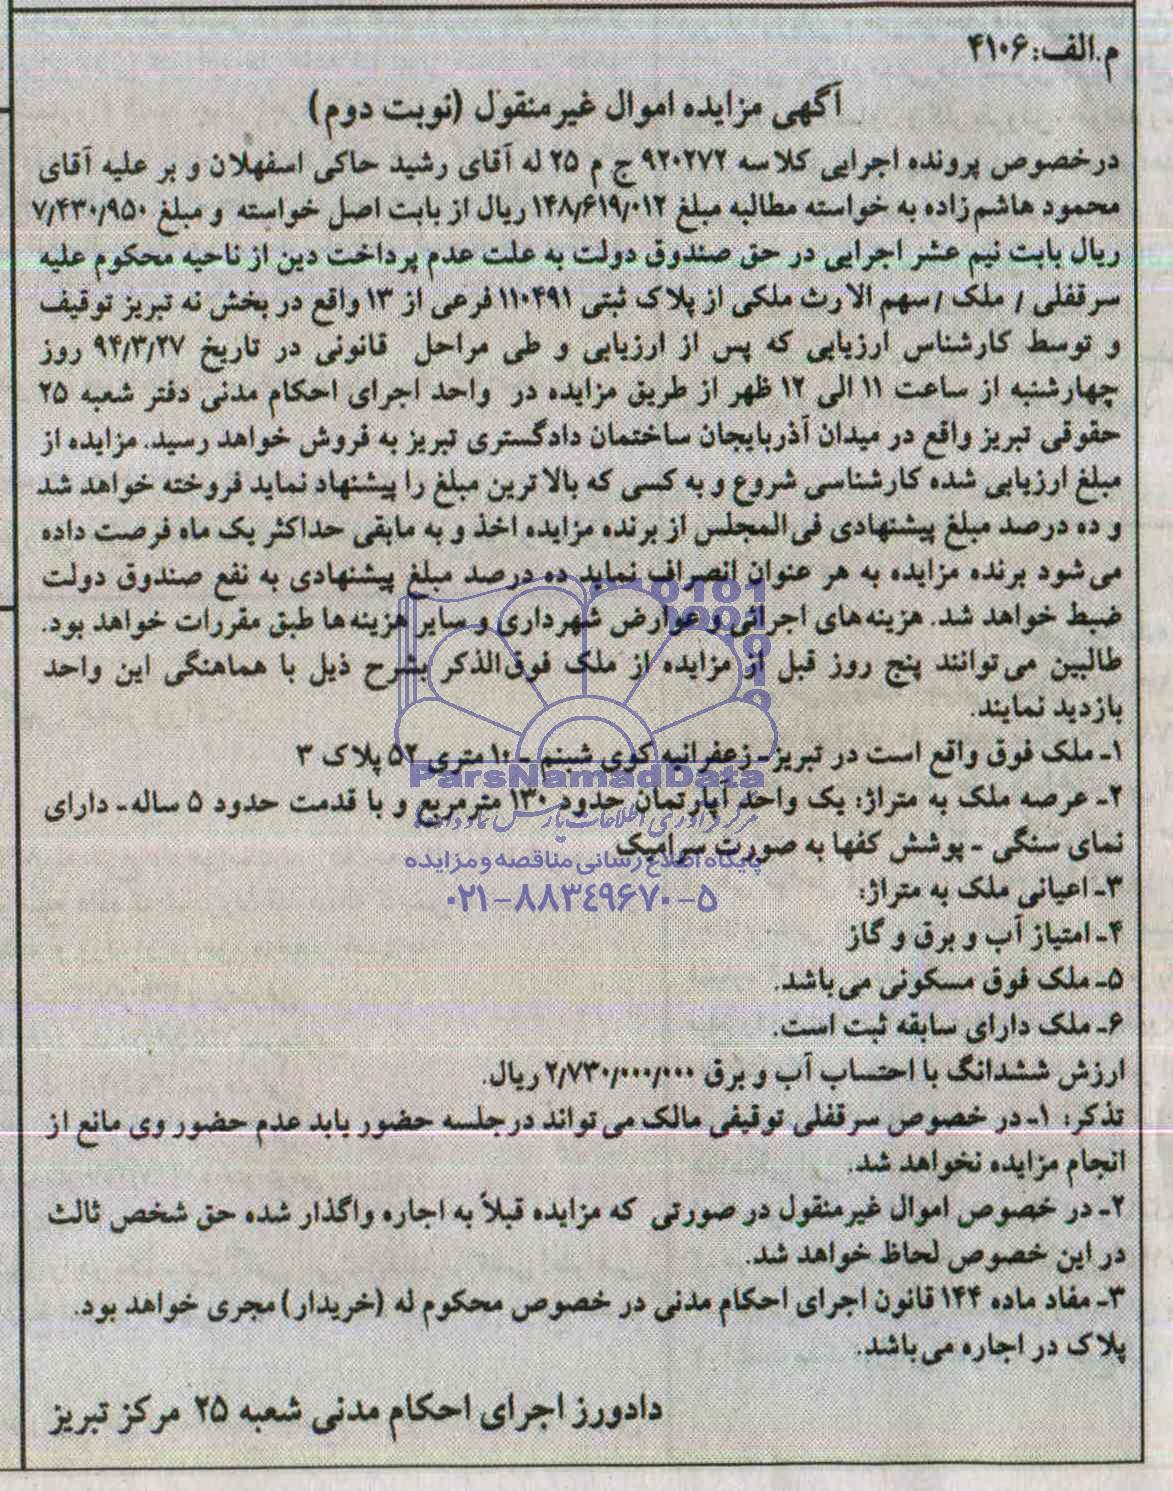 م.الف: ۴۱۰۶
آگهی مزایده اموال غیرمنقول (نوبت دوم)
درخصوص پرونده اجرایی کلاسه ۹۲۰۲۷۲ ج م ۲۵ له آقای رشید حاکی اسفهلان و بر علیه آقای
محمود هاشم‌زاده به خواسته مطالبه مبلغ ۱۴۸/۶۱۹/۰۱۲ ریال از بابت اصل خواسته و مبلغ ۷/۴۳۰/۹۵۰
ریال بابت نیم عشر اجرایی در حق صندوق دولت به علت عدم پرداخت دین از ناحیه محکوم علیه
سرقفلی / ملک / سهم الارث ملکی از پلاک ثبتی ۱۱۰۴۹۱ فرعی از ۱۳ واقع در بخش نه تبریز توقیف
و توسط کارشناس ارزیابی که پس از ارزیابی و طی مراحل قانونی در تاریخ ۹۴/۳/۲۷ روز
چهارشنبه از ساعت ۱۱ الی ۱۲ ظهر از طریق مزایده در واحد اجرای احکام مدنی دفتر شعبه ۲۵
حقوقی تبریز واقع در میدان آذربایجان ساختمان دادگستری تبریز به فروش خواهد رسید. مزایده از
مبلغ ارزیابی شده کارشناسی شروع و به کسی که بالاترین مبلغ را پیشنهاد نماید فروخته خواهد شد
و ده درصد مبلغ پیشنهادی فی‌المجلس از برنده مزایده اخذ و به مابقی حداکثر یک ماه فرصت داده
می‌شود برنده مزایده به هر عنوان انصراف نماید ده درصد مبلغ پیشنهادی به نفع صندوق دولت
ضبط خواهد شد. هزینه‌های اجرائی و عوارض شهرداری و سایر هزینه‌ها طبق مقررات خواهد بود.
طالبین می‌توانند پنج روز قبل از مزایده از ملک فوق‌الذکر بشرح ذیل با هماهنگی این واحد
بازدید نمایند.
۱ـ ملک فوق واقع است در تبریزـ زعفرانیه کوی شبنم ـ ۱۰ متری ۵۲ پلاک ۳
ParsNamadData
۲ـ عرصه ملک به متراژ: یک واحد آپارتمان حدود ۱۳۰ مترمربع و با قدمت حدود ۵ ساله ـ دارای
مرکز فرآوری اطلاعات پارس نماد داده‌ها
نمای سنگی ـ پوشش کفها به صورت سرامیک
پایگاه اطلاع رسانی مناقصه و مزایده
۳ـ اعیانی ملک به متراژ:
۰۲۱-۸۸۳۴۹۶۷۰-۵
۴ـ امتیاز آب و برق و گاز
۵ـ ملک فوق مسکونی می‌باشد.
۶ـ ملک دارای سابقه ثبت است.
ارزش ششدانگ با احتساب آب و برق ۲/۷۳۰/۰۰۰/۰۰۰ ریال.
تذکر: ۱ـ در خصوص سرقفلی توقیفی مالک می‌تواند درجلسه حضور یابد عدم حضور وی مانع از
انجام مزایده نخواهد شد.
۲ـ در خصوص اموال غیرمنقول در صورتی که مزایده قبلاً به اجاره واگذار شده حق شخص ثالث
در این خصوص لحاظ خواهد شد.
۳ـ مفاد ماده ۱۴۴ قانون اجرای احکام مدنی در خصوص محکوم له (خریدار) مجری خواهد بود.
پلاک در اجاره می‌باشد.
دادورز اجرای احکام مدنی شعبه ۲۵ مرکز تبریز